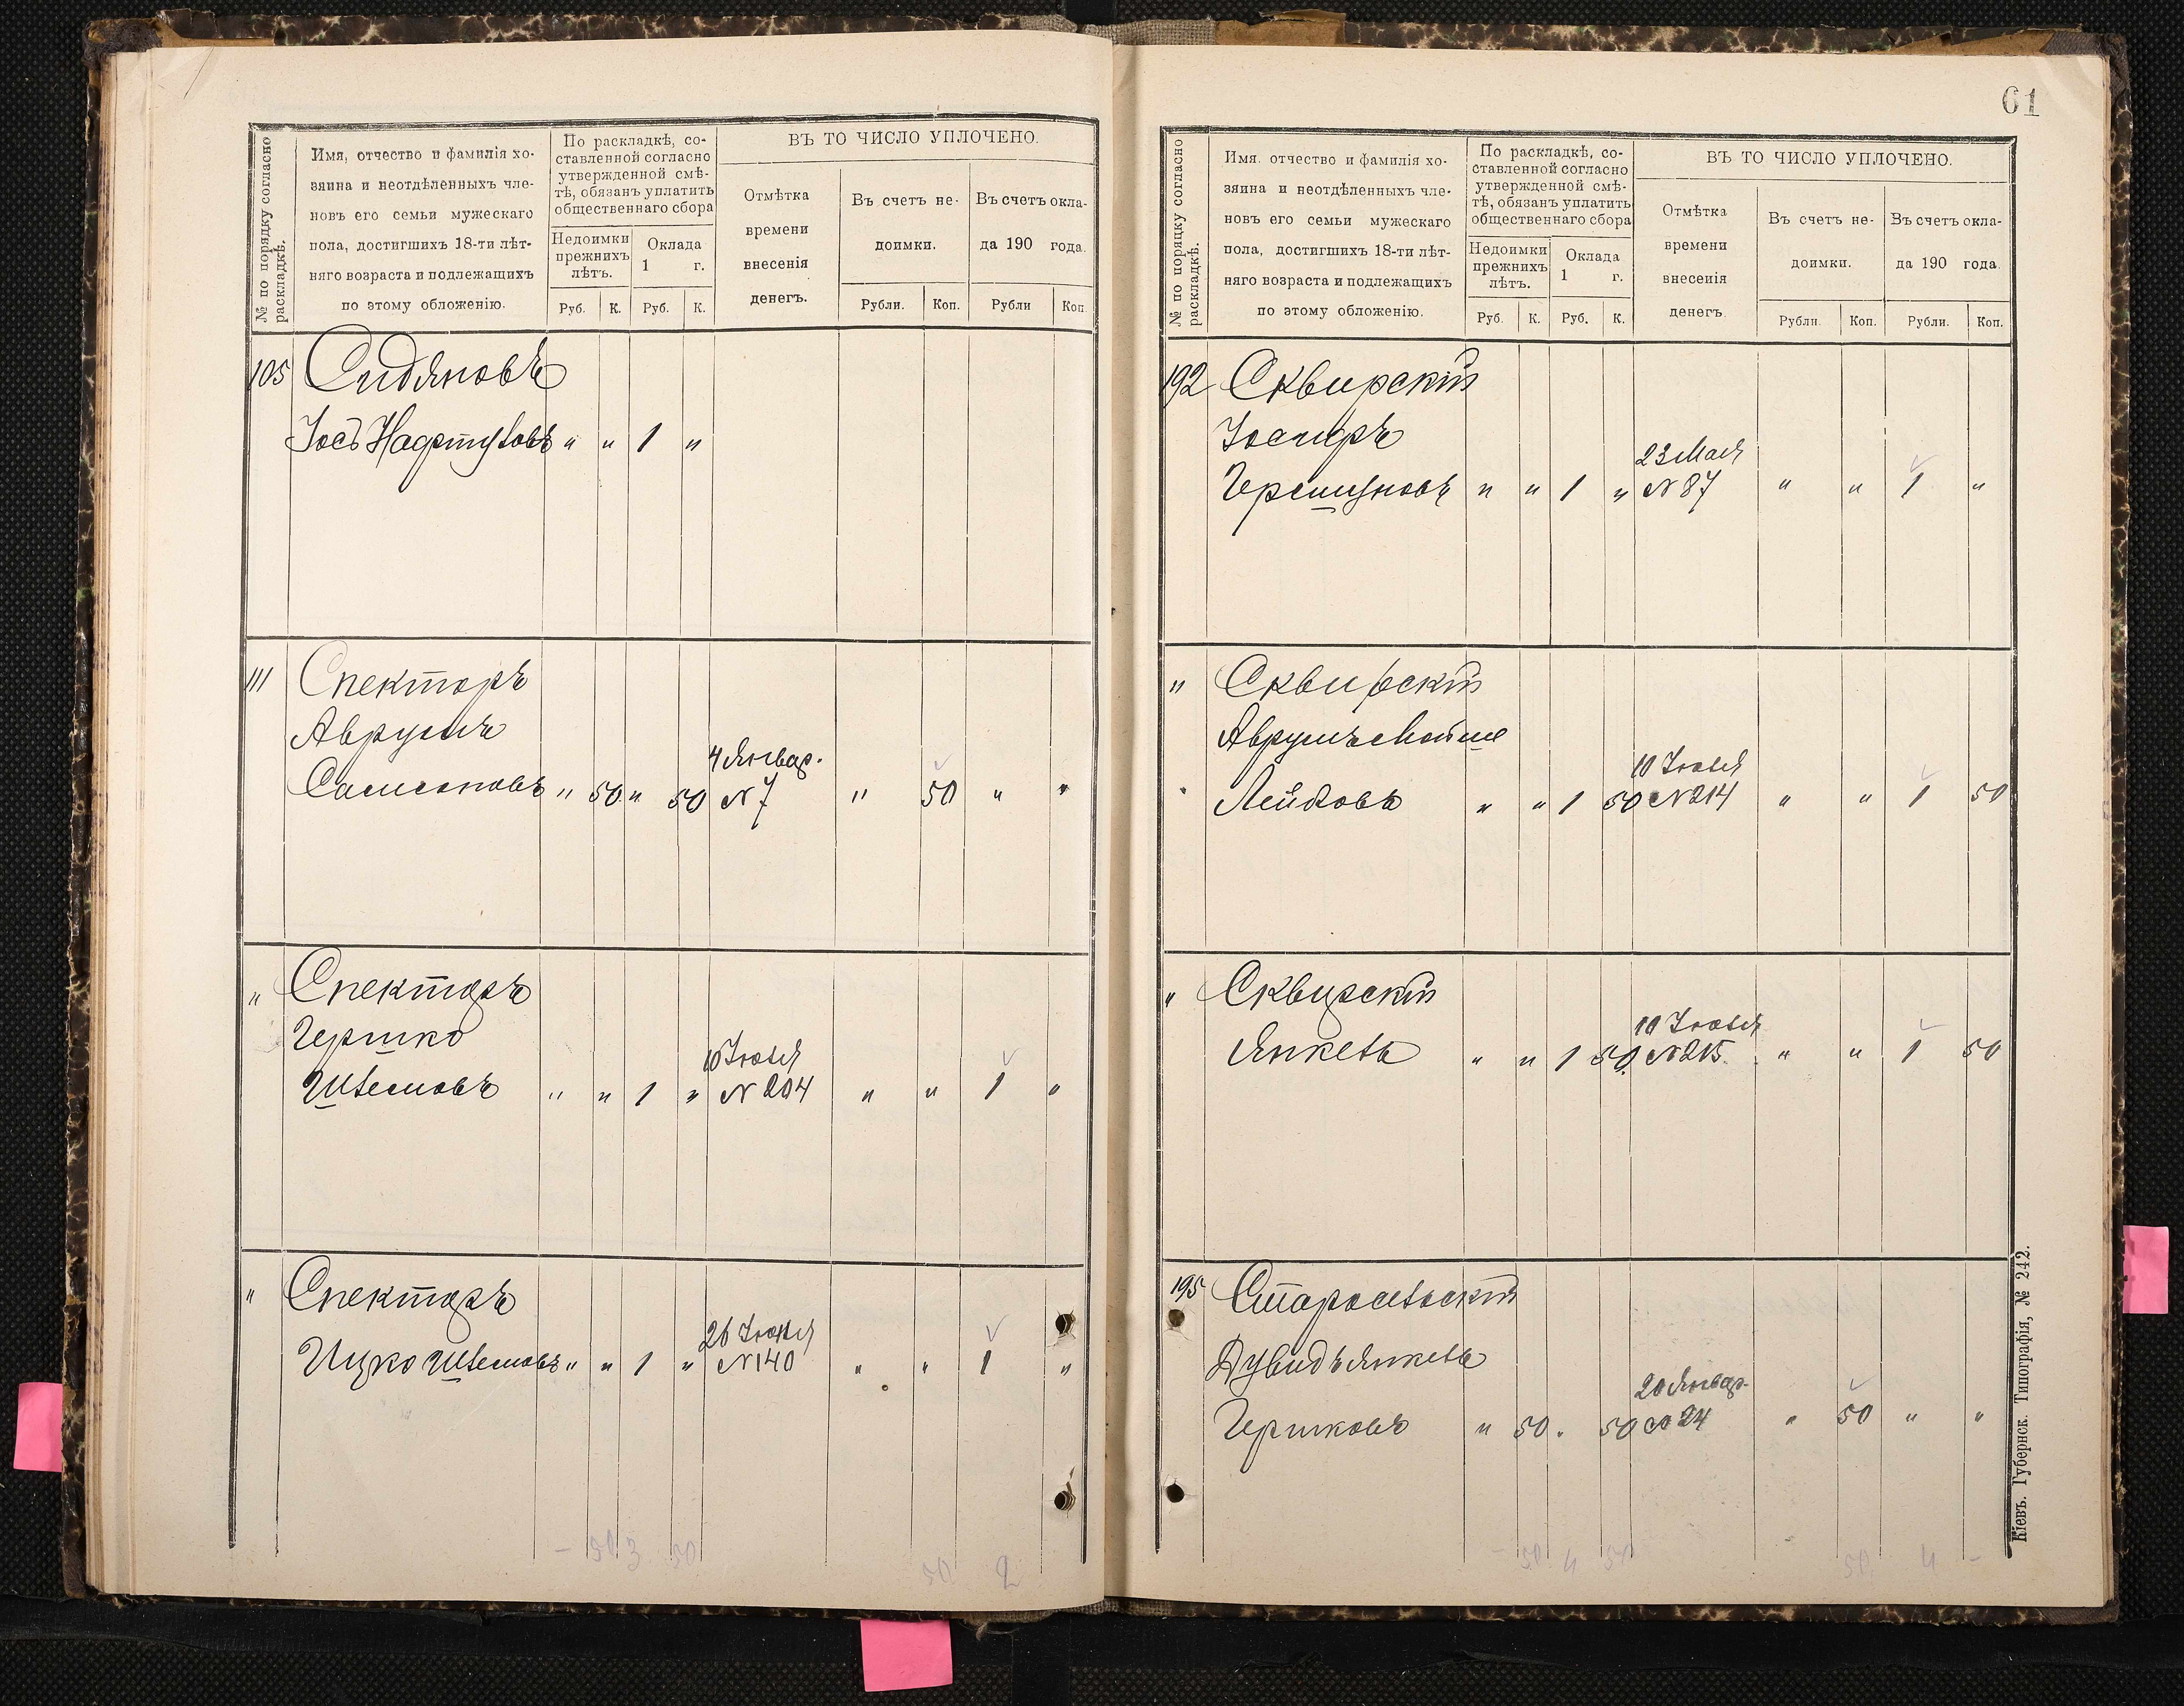 61
№ по порядку согласно
раскладкѣ.
Имя, отчество и фамилія хо-
зяина и неотдѣленныхъ чле-
новъ его семьи мужескаго
пола, достигшихъ 18-ти лѣт-
няго возраста и подлежащихъ
по этому обложенію.
По раскладкѣ, со-
ставленной согласно
утвержденной смѣ-
тѣ, обязанъ уплатить
общественнаго сбора
Недоимки
прежнихъ
лѣтъ.
Оклада
1 г.
Руб. К. Руб. К.
ВЪ ТО ЧИСЛО УПЛОЧЕНО.
Отмѣтка
времени
внесенія
денегъ.
Въ счетъ не-
доимки.
Въ счетъ окла-
да 190 года.
Рубли. Коп. Рубли Коп
105 Сидяновъ
Іосъ " " 1 "
111 Спекторъ
Аврумъ
4 Январ.
Самсоновъ " 50 " 50 № 7 " 50 " "
" Спекторъ
Гершко
10 Іюля
Шлемовъ " " 1 " № 204 " " 1 "
" Спекторъ
26 Іюня
Ицко Шлемовъ " " 1 " № 140 " " 1 "
- 50 3 50 50 2
№ по порядку согласно
раскладкѣ.
Имя. отчество и фамилія хо-
зяина и неотдѣленныхъ чле-
новъ его семьи мужескаго
пола, достигшихъ 18-ти лѣт-
няго возраста и подлежащихъ
по этому обложенію.
По раскладкѣ, со-
ставленной согласно
утвержденной смѣ-
тѣ, обязанъ уплатить
общественнаго сбора
Недоимки
прежнихъ
лѣтъ.
Оклада
1 г.
Руб. К. Руб. К.
ВЪ ТО ЧИСЛО УПЛОЧЕНО.
Отмѣтка
времени
внесенія
денегъ.
Въ счетъ не-
доимки.
Въ счетъ окла-
да 190 года.
Рубли. Коп. Рубли. Коп.
192 Сквирскій
Іосифъ
23 Мая
Гершуновъ " " 1 " № 87 " " 1 "
" Сквирскій
Аврумъ Мойше
10 Іюля
Лейбовъ " " 1 50 № 214 " " 1 50
" Сквирскій
10 Іюля
Янкель " " 1 50 № 215 " " 1 50
195 Старосельскій
Дувидъ Янкель
20 Январ.
Гершковъ " 50 " 50 № 24 " 50 " "
- 50 4 50 50 4 -
Кіевъ. Губернск. Типографія, № 242.